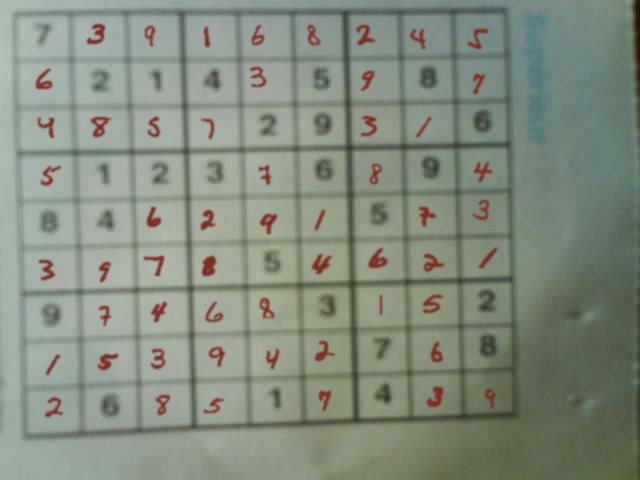 7 3 9 1 6 8 2 4 5
6 2 1 4 3 5 9 8 7
4 8 5 7 2 9 3 1 6
5 1 2 3 7 6 8 9 4
8 4 6 2 9 1 5 7 3
3 9 7 8 5 4 6 2 1
9 7 4 6 8 3 1 5 2
1 5 3 9 4 2 7 6 8
2 6 8 5 1 7 4 3 9
Superieur